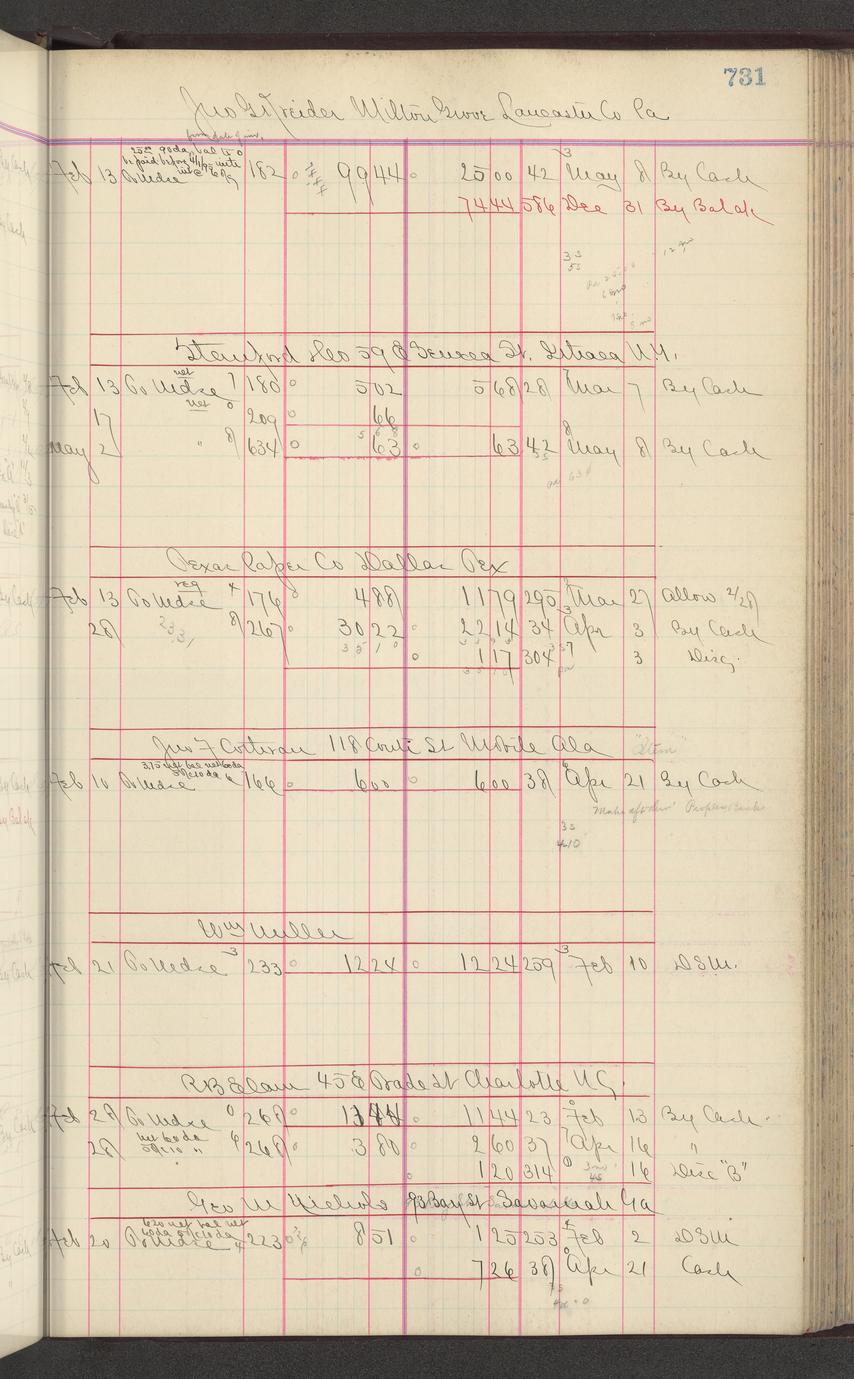 731
Jno G Kreider Milton Grove Lancaster Co Pa
from date of inv.
25.00 90 da, bal to
be paid before
Feb 13 To Mdse 182 99 44 25 00 42 May 8 By Cash
74 44 586 Dec 31 By Balak
Stanford Geo 59 E Seneca St. Ithaca N.Y.
net
Feb 13 To Mdse 7 180 5 02 5 68 28 Mar 7 By Cash
net 0
17 209 66
5 6 8
May 2 " 8 634 63 63 42 May 8 By Cash
Texas Paper Co Dallas Tex
reg
Feb 13 To Mdse 4 176 4 88 11 79 295 Mar 27 Allow 2/28
28 8 267 30 22 22 14 34 Apr 3 By Cash
3 5 1 0
1 17 304 3 Disc.
Jno F Cothran 118 Conti St Mobile Ala
3.75 net bal net 60 da
5% 10 da
Feb 10 To Mdse 6 166 6 00 6 00 38 Apr 21 By Cash
Peoples Bank
35
410
Wm Miller
Feb 21 To Mdse 3 233 12 24 12 24 259 Feb 10 D.S.M.
R B Elam 45 E Trade St Charlotte N.C.
Feb 28 To Mdse 0 268 11 44 11 44 23 Feb 13 By Cash
net 60 da
28 5% 10 " 268 3 80 2 60 37 Apr 16 "
1 20 314 16 Disc "B"
Geo M Nichols 93 Bay St Savannah Ga
6.20 net bal net
60 da 5% 10 da
Feb 20 To Mdse 4 223 8 51 1 25 253 Feb 2 D.S.M
7 26 38 Apr 21 Cash